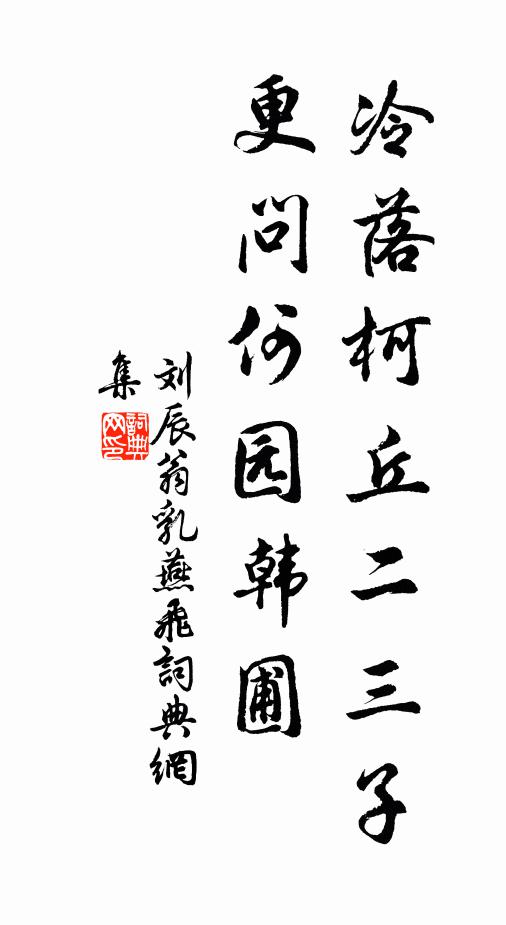 冷落柯丘二三子
更问何园韩圃
刘辰翁乳燕飛詞典網
集
詞典网印